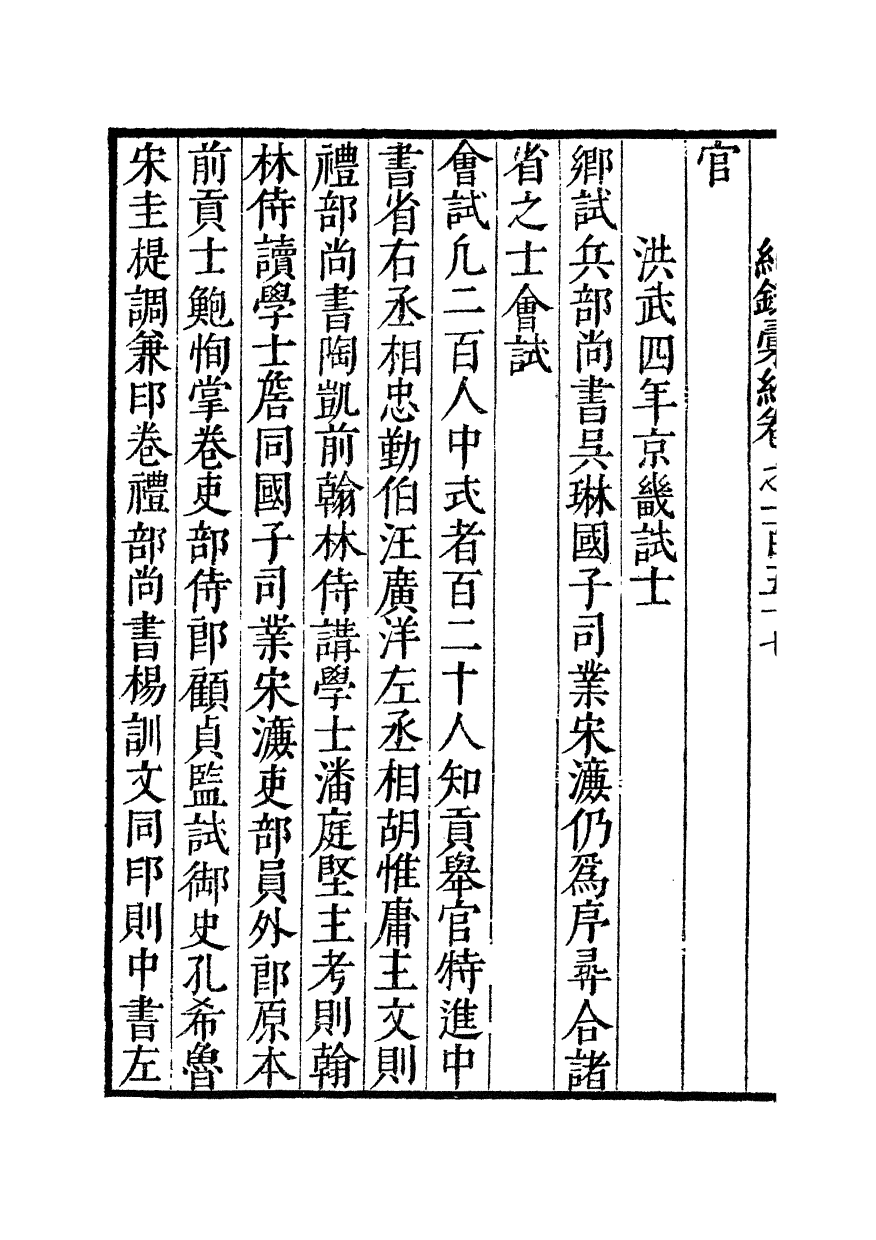 紀錄彙編卷之一百五十七
官
洪武四年京畿試士
鄉試兵部尚書吳琳國子司業宋濂仍爲序尋合諸
省之士會試
會試凡二百人中式者百二十人知貢舉官特進中
書省右丞相忠勤伯汪廣洋左丞相胡惟庸主文則
禮部尚書陶凱前翰林侍講學士潘庭堅主考則翰
林侍讀學士詹同國子司業宋濂吏部員外郎原本
前貢士鮑恂掌卷吏部侍郎顧貞監試御史孔希魯
宋圭提調兼印卷禮部尚書楊訓文同印則中書左